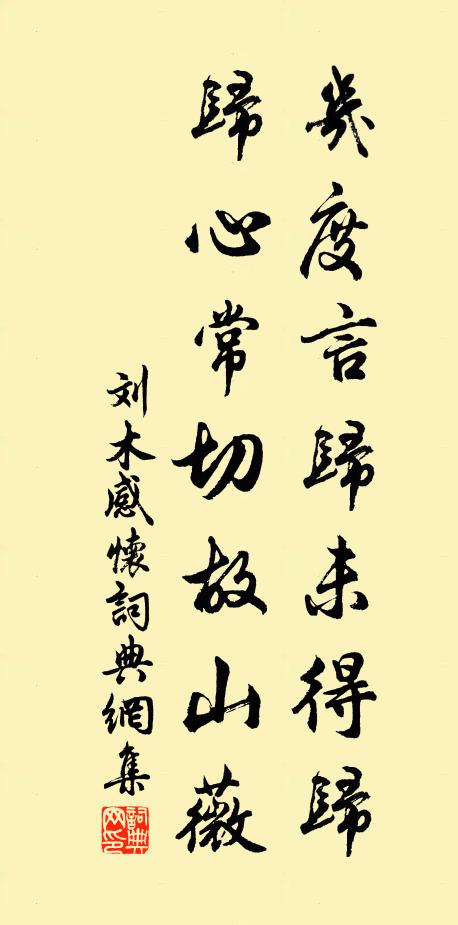 幾度言歸未得歸
歸心常切故山薇
刘木感懷詞典網集
詞典网印